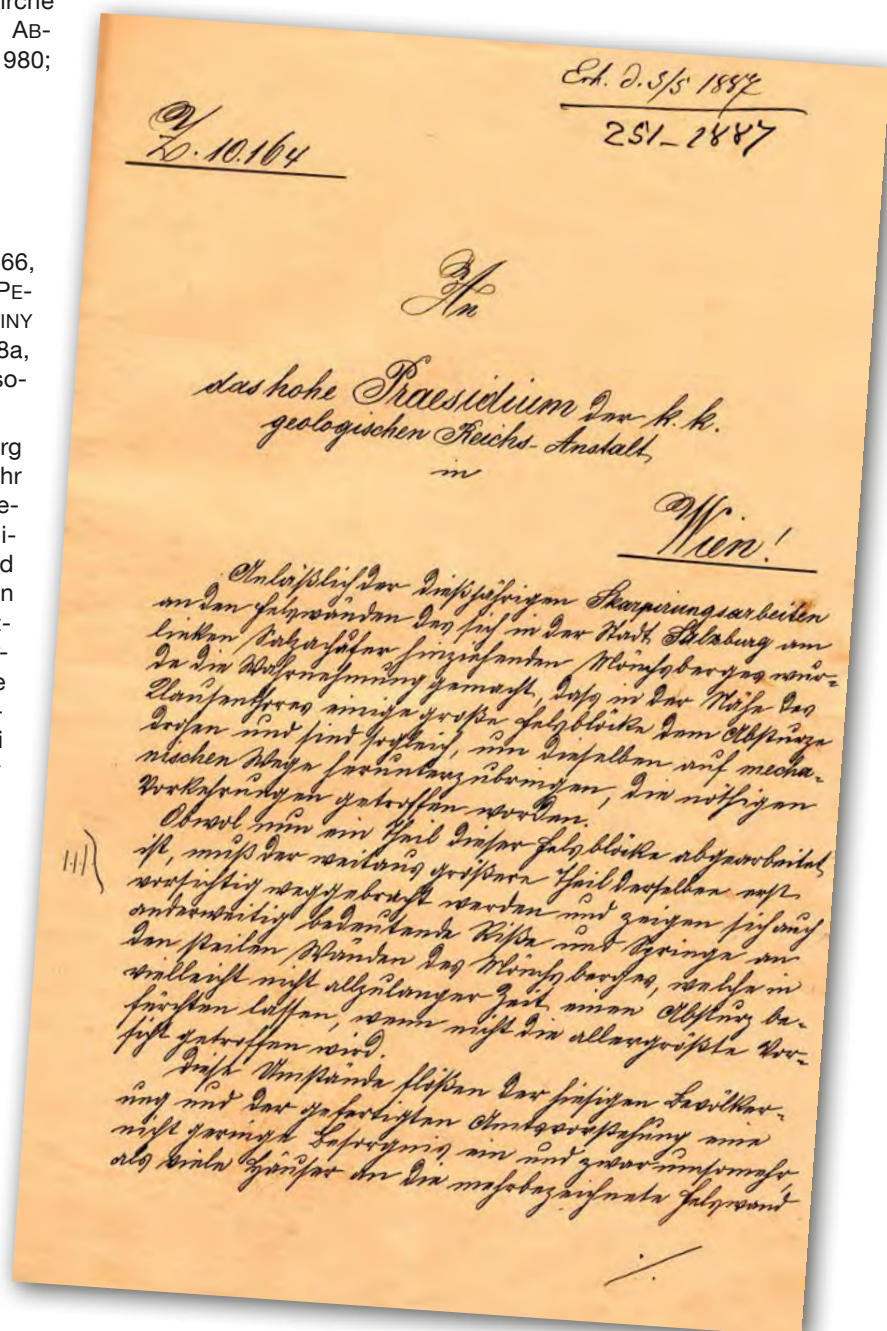 irche
AB-
980;
66,
PE-
INY
8a,
so-
rg
hr
e-
i-
d
n
z-
r-
e
-
i
-
Erh. d. 3/5 1887
251_1887
Z. 10.164
An
das hohe Praesidium der k. k.
geologischen Reichs-Anstalt
in
Wien!
Anläßlich der dießjährigen Skarpirungsarbeiten
an den Felswänden des sich in der Stadt Salzburg am
linken Salzachufer hinziehenden Mönchsberges wur-
de die Wahrnehmung gemacht, daß in der Nähe des
Klausenthores einige große Felsblöcke dem Absturze
drohen und sind sogleich, um dieselben auf mecha-
nischen Wege herunterzubringen, die nöthigen
Vorkehrungen getroffen worden.
Obwol nun ein Theil dieser Felsblöcke abgearbeitet
ist, muß der weitaus größere Theil derselben erst
vorsichtig weggebracht werden und zeigen sich auch
anderweitig bedeutende Riße und Sprünge an
den steilen Wänden des Mönchsberges, welche in
vielleicht nicht allzulanger Zeit einen Absturz be-
fürchten lassen, wenn nicht die allergrößte Vor-
sicht getroffen wird.
Diese Umstände flößen der hiesigen Bevölker-
ung und der gefertigten Amtsvorstehung eine
nicht geringe Besorgnis ein und zwar umsomehr,
als viele Häuser an die mehrbezeichnete Felswand
./.